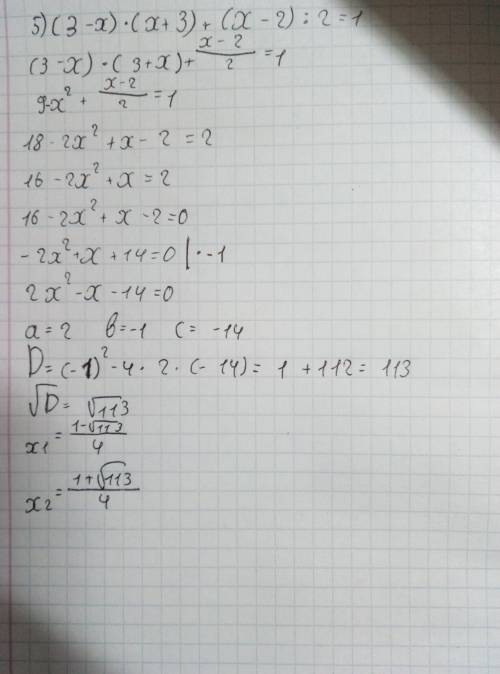 5) (3 - x) · (x + 3) + (x - 2) : 2 = 1
(3 - x) · (3 + x) + \frac{x - 2}{2} = 1
9 - x² + \frac{x - 2}{2} = 1
18 - 2x² + x - 2 = 2
16 - 2x² + x = 2
16 - 2x² + x - 2 = 0
- 2x² + x + 14 = 0 | · -1
2x² - x - 14 = 0
a = 2 b = -1 c = -14
D = (-1)² - 4 · 2 · (- 14) = 1 + 112 = 113
√D = √113
x1 = \frac{1 - √113}{4}
x2 = \frac{1 + √113}{4}